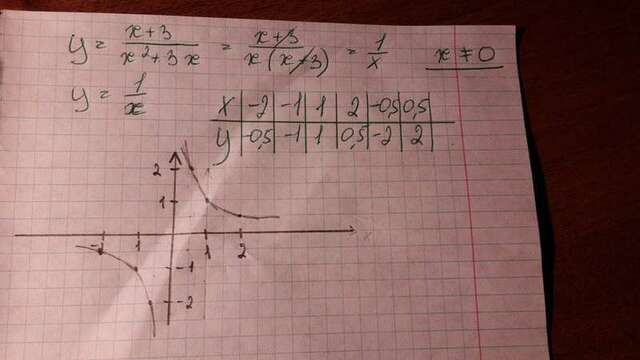 y = x+3 / x²+3x = x+3 / x(x+3) = 1/x x ≠ 0
y = 1/x
x | -2 | -1 | 1 | 2 | -0,5 | 0,5
y | -0,5 | -1 | 1 | 0,5 | -2 | 2
2
1
1 1 2
-1
-2